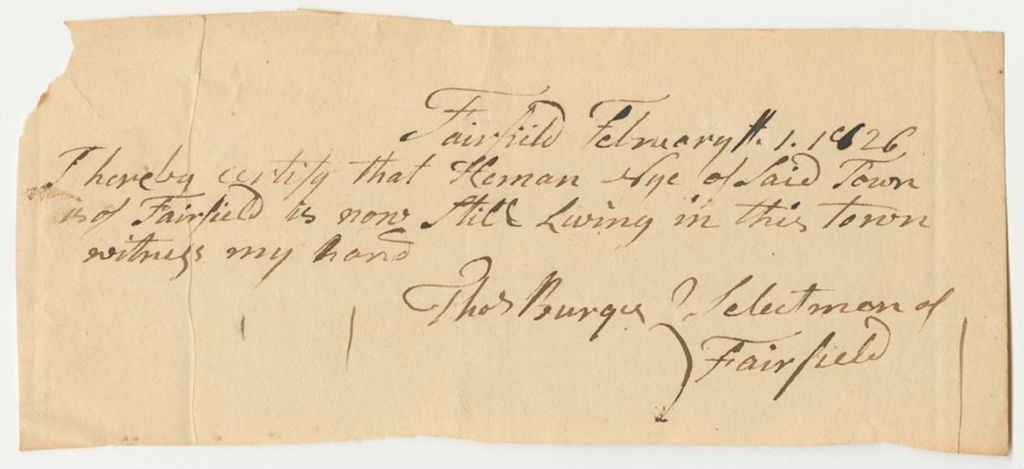 Fairfield February 1. 1826
I hereby certify that Heman Nye of Said Town
is of Fairfield is now Still Living in this Town
witness my hand
Thos Burges } Selectman of
Fairfield